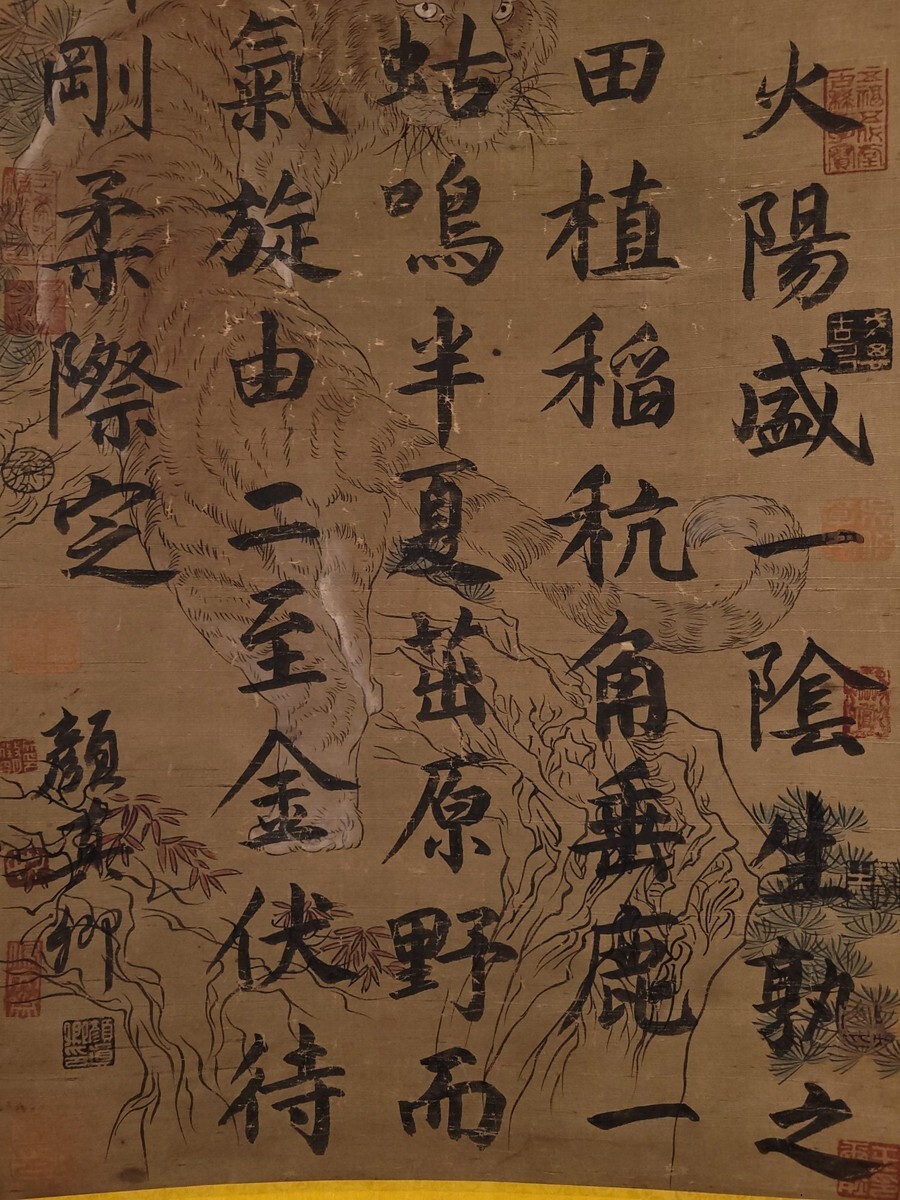 火陽盛一陰生孰之
田植稲秔角垂鹿一
蛄鳴半夏茁原野而
氣旋由二至金伏待
剛柔際定
顏真卿